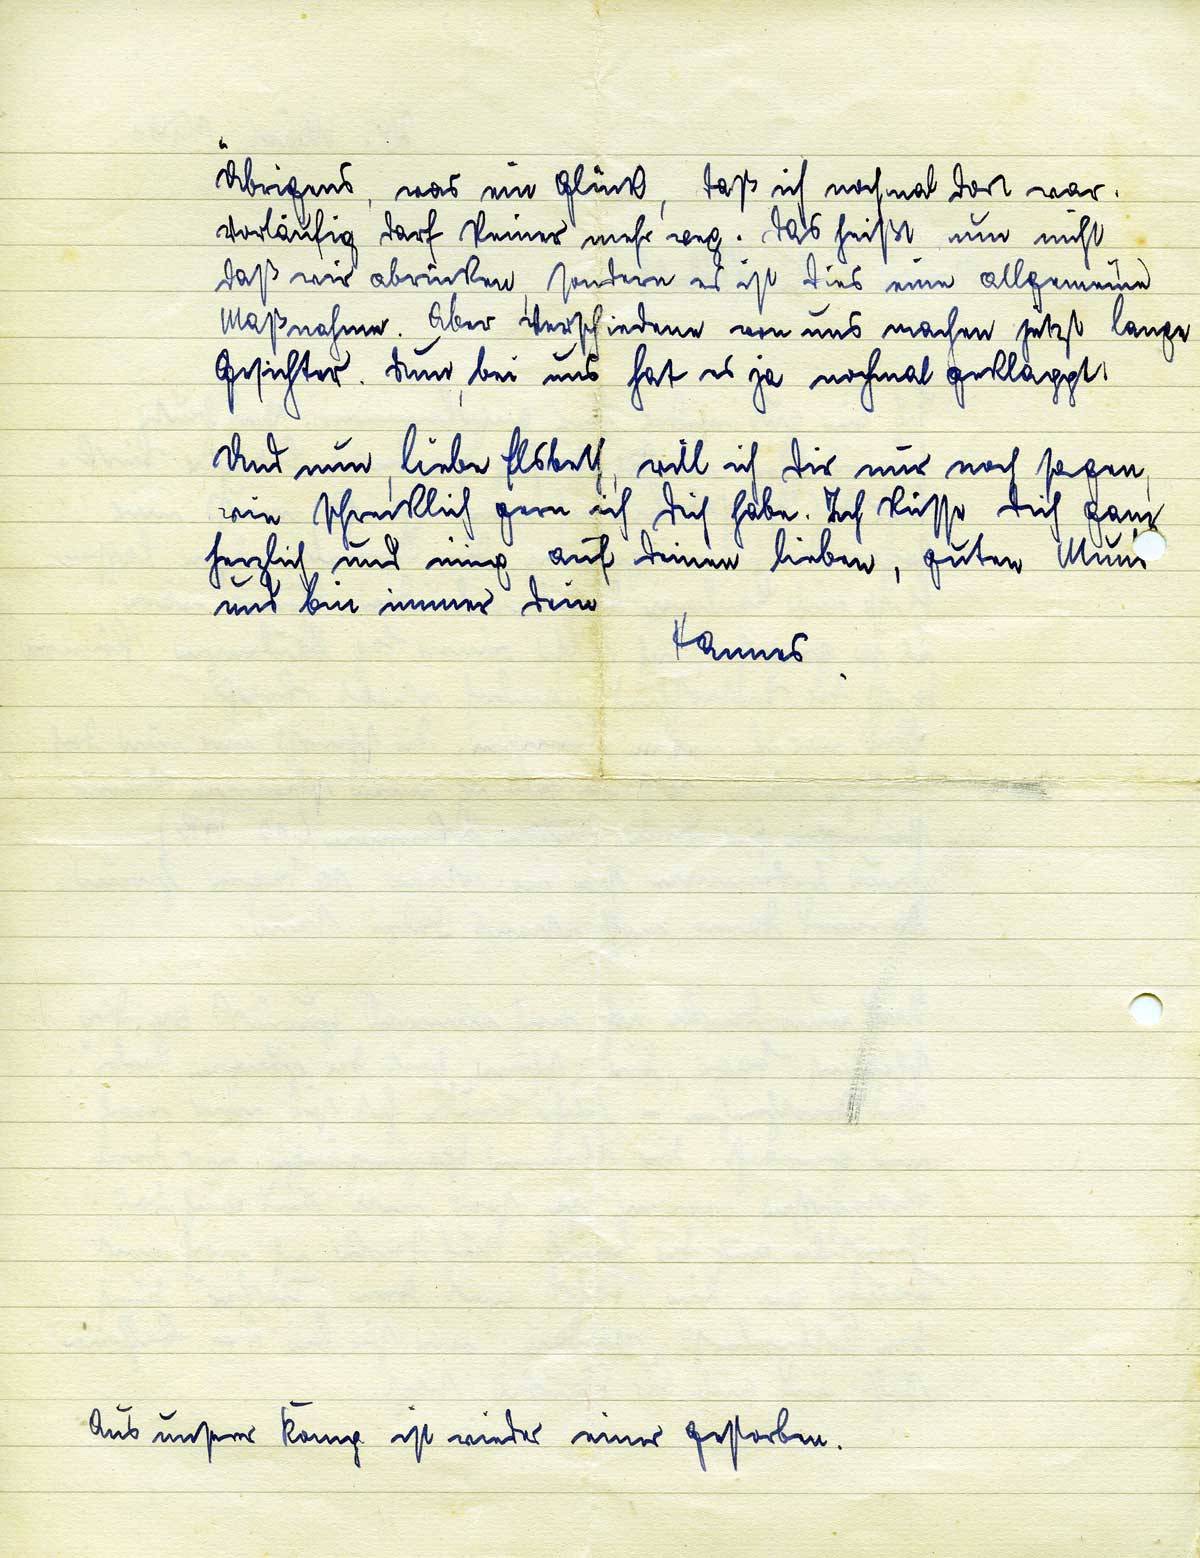 Übrigens, was ein Glück, daß ich nochmal dort war.
Vorläufig darf keiner mehr weg. Das heißt nun nicht
daß wir abrücken, sondern es ist dies eine allgemeine
Maßnahme. Aber verschiedene von uns machen jetzt lange
Gesichter. Nun, bei uns hat es ja nochmal geklappt.
Und nun, liebe Elsbeth, will ich dir nur noch sagen,
wie schrecklich gern ich dich habe. Ich küsse dich ganz
herzlich und innig auf deinen lieben, guten Mund
und bin immer dein
Hannes.
Aus unserer Komp. ist wieder einer gestorben.